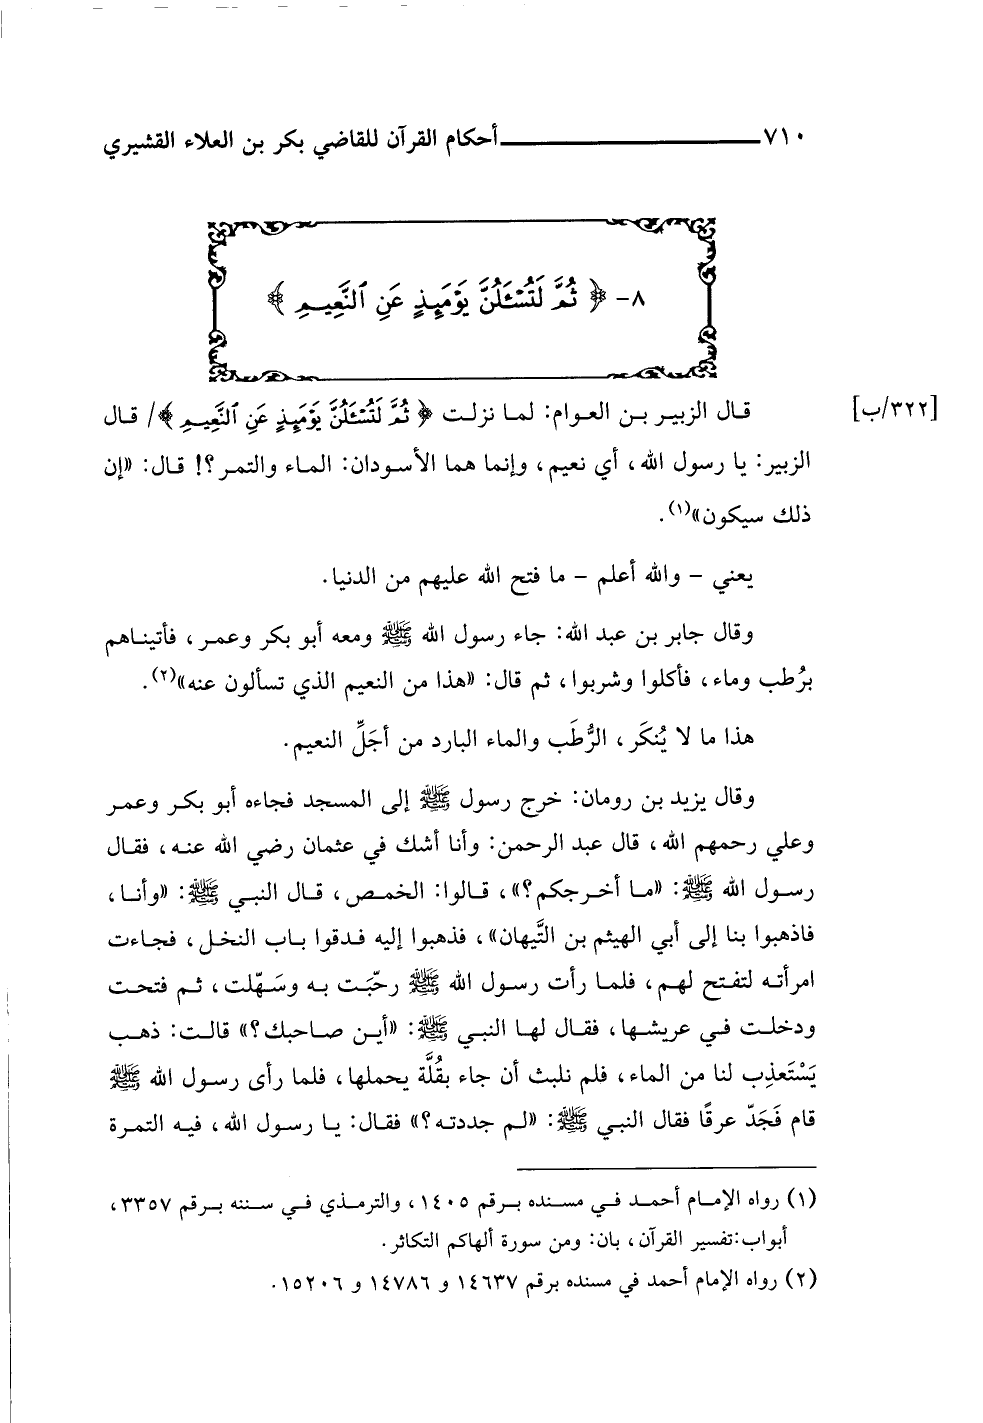 ٧١٠ أحكام القرآن للقاضي بكر بن العلاء القشيري
٨- ﴿ ثُمَّ لَتُسْـَٔلُنَّ يَوْمَئِذٍ عَنِ ٱلنَّعِيمِ ﴾
[٣٢٢/ب] قال الزبير بن العوام: لما نزلت ﴿ ثُمَّ لَتُسْـَٔلُنَّ يَوْمَئِذٍ عَنِ ٱلنَّعِيمِ ﴾/ قال
الزبير: يا رسول الله، أي نعيم، وإنما هما الأسودان: الماء والتمر؟! قال: «إن
ذلك سيكون»(١).
يعني – والله أعلم – ما فتح الله عليهم من الدنيا.
وقال جابر بن عبد الله: جاء رسول الله ﷺ ومعه أبو بكر وعمر، فأتيناهم
برُطب وماء، فأكلوا وشربوا، ثم قال: «هذا من النعيم الذي تسألون عنه»(٢).
هذا ما لا يُنكَر، الرُّطَب والماء البارد من أجَلِّ النعيم.
وقال يزيد بن رومان: خرج رسول ﷺ إلى المسجد فجاءه أبو بكر وعمر
وعلي رحمهم الله، قال عبد الرحمن: وأنا أشك في عثمان رضي الله عنه، فقال
رسول الله ﷺ: «ما أخرجكم؟»، قالوا: الخمص، قال النبي ﷺ: «وأنا،
فاذهبوا بنا إلى أبي الهيثم بن التَّيهان»، فذهبوا إليه فدقوا باب النخل، فجاءت
امرأته لتفتح لهم، فلما رأت رسول الله ﷺ رحّبَت به وسَهّلت، ثم فتحت
ودخلت في عريشها، فقال لها النبي ﷺ: «أين صاحبك؟» قالت: ذهب
يَسْتَعذِب لنا من الماء، فلم نلبث أن جاء بقُلَّة يحملها، فلما رأى رسول الله ﷺ
قام فَجَدّ عرقًا فقال النبي ﷺ: «لم جددته؟» فقال: يا رسول الله، فيه التمرة
(١) رواه الإمام أحمد في مسنده برقم ١٤٠٥، والترمذي في سننه برقم ٣٣٥٧،
أبواب:تفسير القرآن، بان: ومن سورة ألهاكم التكاثر.
(٢) رواه الإمام أحمد في مسنده برقم ١٤٦٣٧ و ١٤٧٨٦ و ١٥٢٠٦.